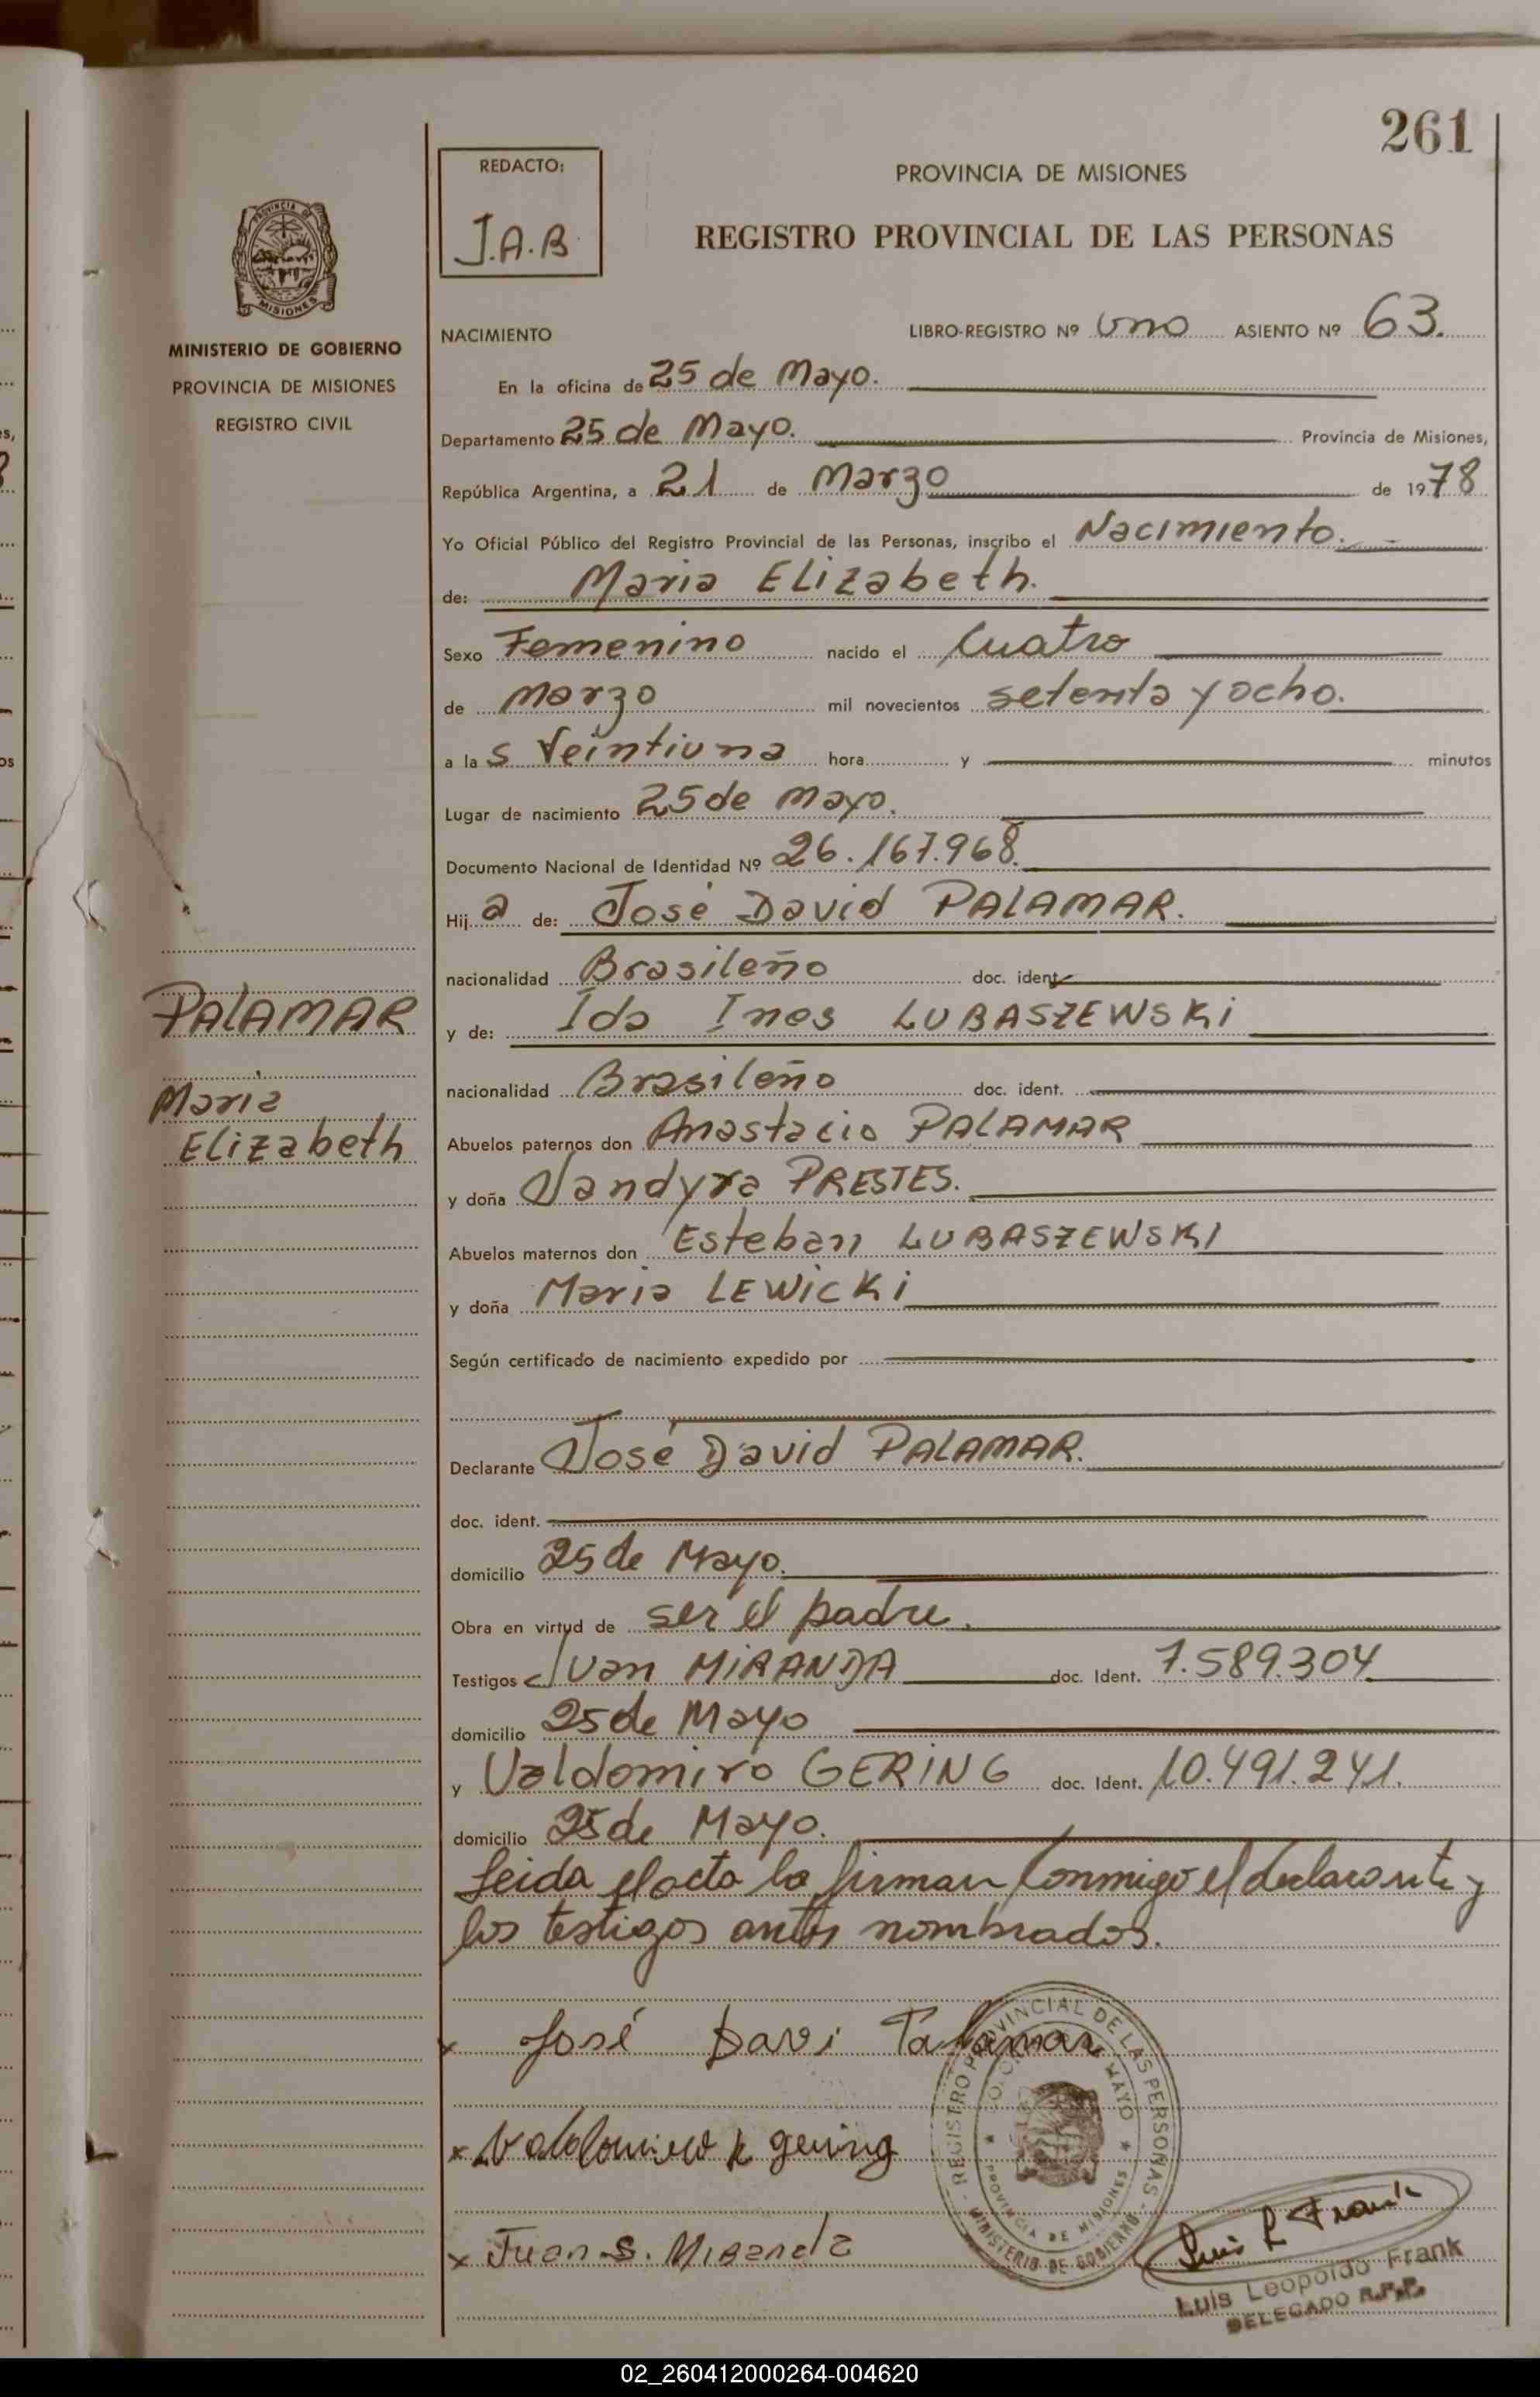 261
REDACTO:
J.A.B
PROVINCIA DE MISIONES
REGISTRO PROVINCIAL DE LAS PERSONAS
PROVINCIA DE
MISIONES
MINISTERIO DE GOBIERNO
PROVINCIA DE MISIONES
REGISTRO CIVIL
NACIMIENTO LIBRO-REGISTRO Nº Uno ASIENTO Nº 63.
En la oficina de 25 de Mayo.
Departamento 25 de Mayo. Provincia de Misiones,
República Argentina, a 21 de Marzo de 1978
Yo Oficial Público del Registro Provincial de las Personas, inscribo el Nacimiento.
de: Maria Elizabeth.
Sexo Femenino nacido el Cuatro
de Marzo mil novecientos setenta y ocho.
a las Veintiuna hora y minutos
Lugar de nacimiento 25 de Mayo.
Documento Nacional de Identidad Nº 26.167.968.
Hija de: José David PALAMAR.
nacionalidad Brasileño doc. ident.
y de: Ida Ines LUBASZEWSKi
nacionalidad Brasileño doc. ident.
PALAMAR
Maria
Elizabeth
Abuelos paternos don Anastacio PALAMAR
y doña Jandyra PRESTES.
Abuelos maternos don Esteban LUBASZEWSKI
y doña Maria LEWICKi
Según certificado de nacimiento expedido por
Declarante José David PALAMAR.
doc. ident.
domicilio 25 de Mayo.
Obra en virtud de ser el padre.
Testigos Juan MIRANDA doc. Ident. 7.589.304
domicilio 25 de Mayo
y Valdomiro GERING doc. Ident. 10.491.241.
domicilio 25 de Mayo.
Leida el acta la firman conmigo el declarante y
los testigos antes nombrados.
x José Davi Palamar
REGISTRO PROVINCIAL DE LAS PERSONAS
MINISTERIO DE GOBIERNO
PROVINCIA DE MISIONES
x Valdomiro k gering
x Juan S. Miranda
Luis L Frank
Luis Leopoldo Frank
DELEGADO R.P.P.
02_260412000264-004620